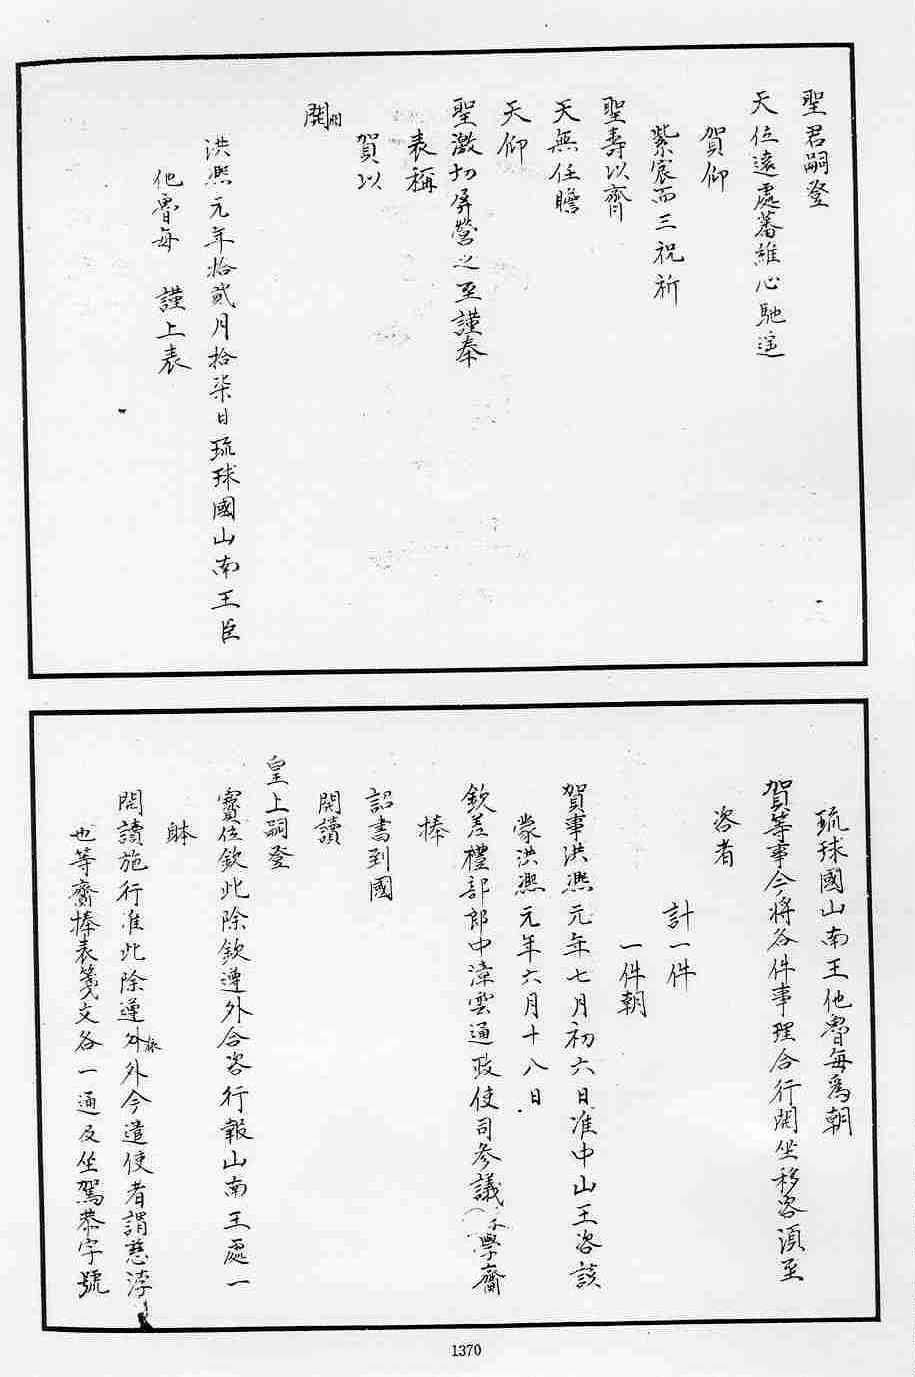 聖君嗣登
天位遠處蕃維心馳遥
賀仰
紫宸而三祝祈
聖壽以齊
天無任瞻
天仰
聖激切屏營之至謹奉
表稱
賀以
聞
洪熙元年拾貳月拾柒日琉球國山南王臣
他魯每　謹上表
琉球國山南王他魯每爲朝
賀等事今將各件事理合行開坐移咨須至
咨者
計一件
一件朝
賀事洪熙元年七月初六日准中山王咨該
蒙洪熙元年六月十八日
欽差禮部郎中漳雲通政使司參議學齎
捧
詔書到國
開讀
皇上嗣登
寶位欽此除欽遵外合咨行報山南王處一
躰
開讀施行准此除遵外外今遣使者謂慈浡
也等齎捧表箋文各一通及坐駕恭字號
1370